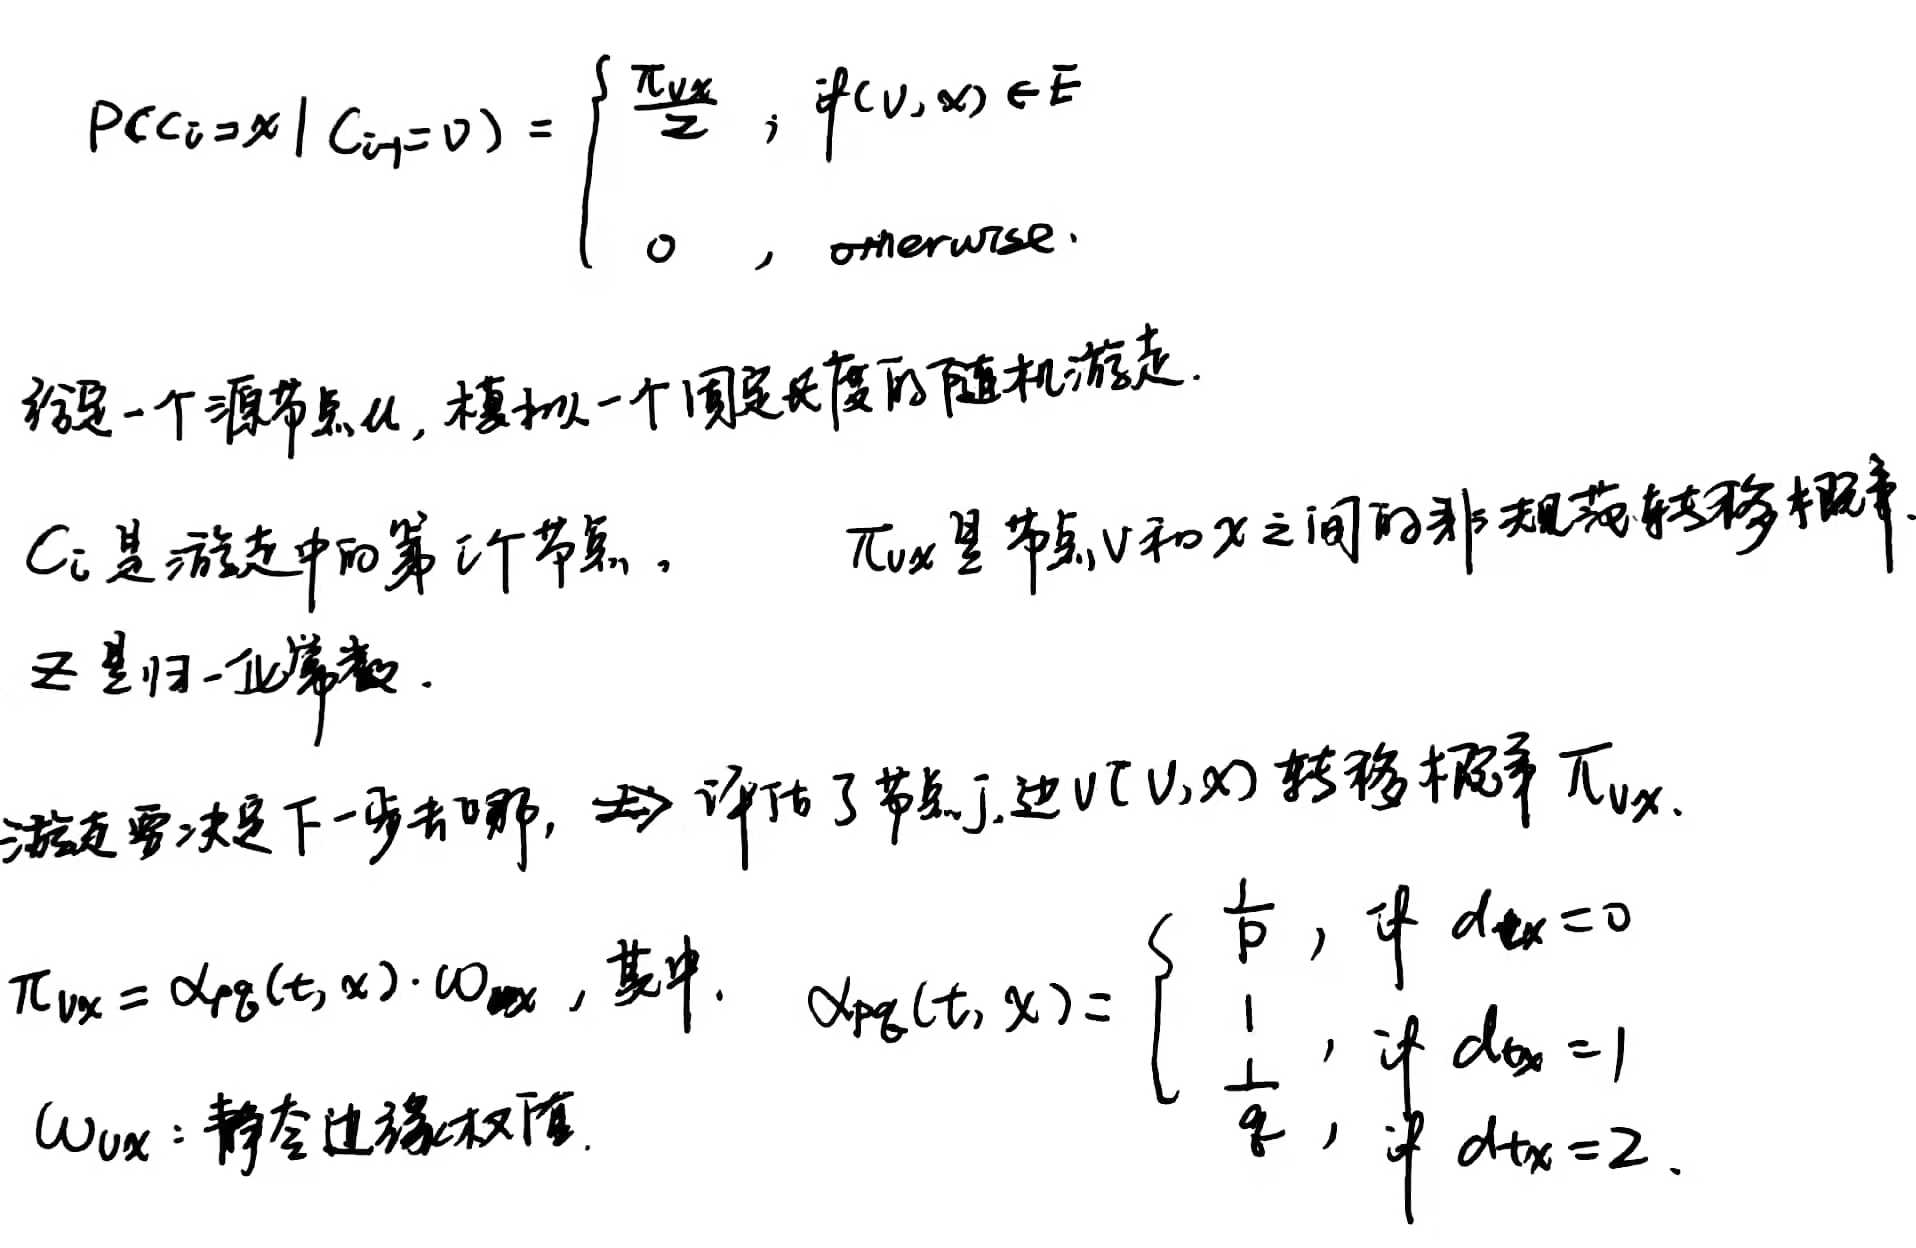 P(Cᵢ=x | Cᵢ₋₁=v) = { πvx/Z , if (v,x) ∈ E
0 , otherwise.
给定一个源节点u, 模拟一个固定长度的随机游走.
Cᵢ是游走中的第i个节点. πvx是节点v和x之间的非规范转移概率.
Z是归一化常数.
游走要决定下一步去哪, ⇒ 评估了节点j.边v(v,x)转移概率πvx.
πvx = αpq(t,x)·ωvx , 其中. αpq(t,x) = { 1/p , if dtx=0
1 , if dtx=1
1/q , if dtx=2.
ωvx : 静态边缘权值.